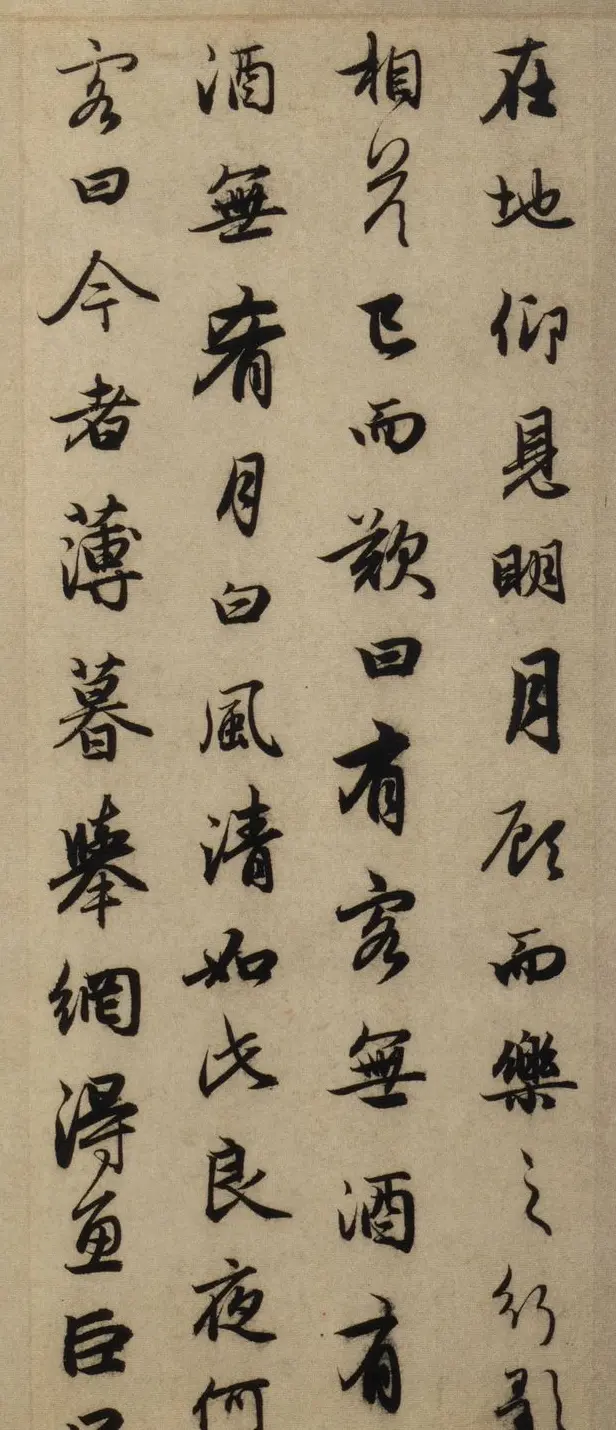 在地仰見明月顧而樂之行歌
相答已而歎曰有客無酒有
酒無肴月白風清如此良夜何
客曰今者薄暮舉網得魚巨